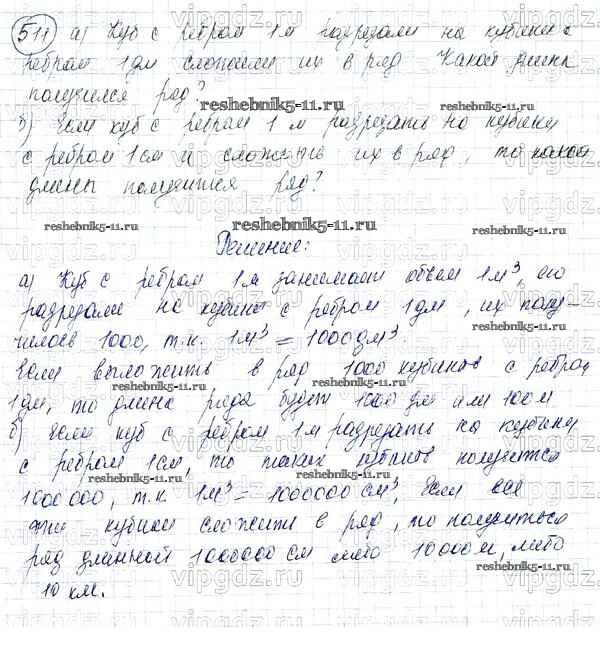 511 а) Куб с ребром 1 м разрезали на кубики с
ребром 1 дм сложили их в ряд. Какой длины
получился ряд?
reshebnik5-11.ru
б) Если куб с ребром 1 м разрезать на кубики
с ребром 1 см и сложить их в ряд, то какой
длины получится ряд?
reshebnik5-11.ru
Решение:
а) Куб с ребром 1 м занимает объем 1 м³, его
разрезали на кубики с ребром 1 дм, их полу-
чилось 1000, т.к. 1 м³ = 1000 дм³.
Если выложить в ряд 1000 кубиков с ребром
reshebnik5-11.ru
reshebnik5-11.ru
1 дм, то длина ряда будет 1000 дм или 100 м
б) Если куб с ребром 1 м разрезать на кубики
с ребром 1 см, то таких кубиков получится
reshebnik5-11.ru
1000000, т.к. 1 м³ = 1000000 см³. Если все
эти кубики сложить в ряд, то получиться
ряд длинной 1000000 см либо 10000 м, либо
reshebnik5-11.ru
10 км.
vipgdz.ru